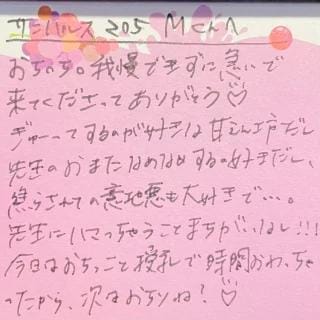 サンパレス 205 Mくん
おちの。我慢できずに急いで
来てくださってありがとう♡
ぎゅーってするのが好きな甘えん上戸だし
先生のおまたなめなめするの好きだし、
焦らされての意地悪も大好きで…。
先生にハマっちゃうことまちがいなし!!!
今日はおちっこと授乳で時間おわっちゃ
ったから、次はおちりね?♡